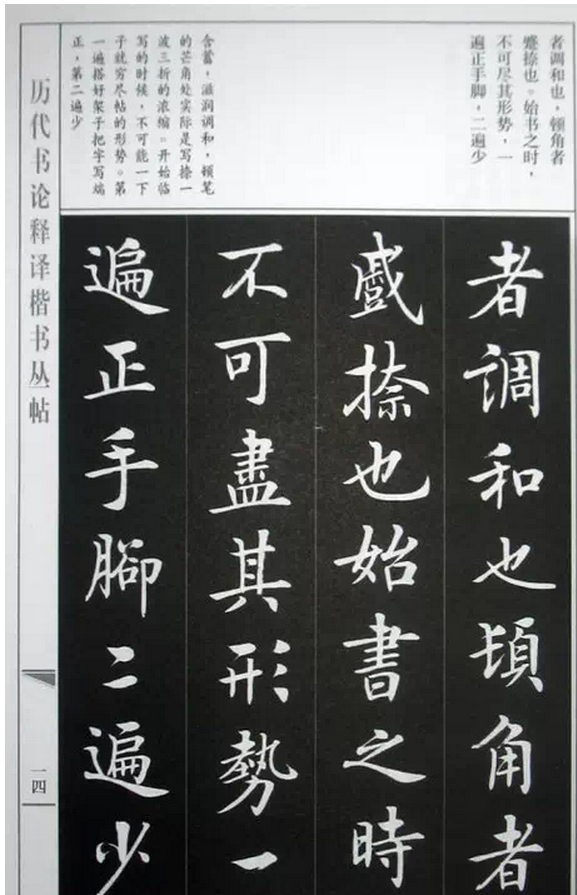 者调和也，顿角者
蹙捺也。始书之时，
不可尽其形势，一
遍正手脚，二遍少
含蓄，滋润调和，顿笔
的芒角处实际是写捺一
波三折的浓缩。开始临
写的时候，不可能一下
子就穷尽帖的形势。第
一遍搭好架子把字写端
正，第二遍少
者調和也頓角者
蹙捺也始書之時
不可盡其形勢一
遍正手腳二遍少
历代书论释译楷书丛帖
一四